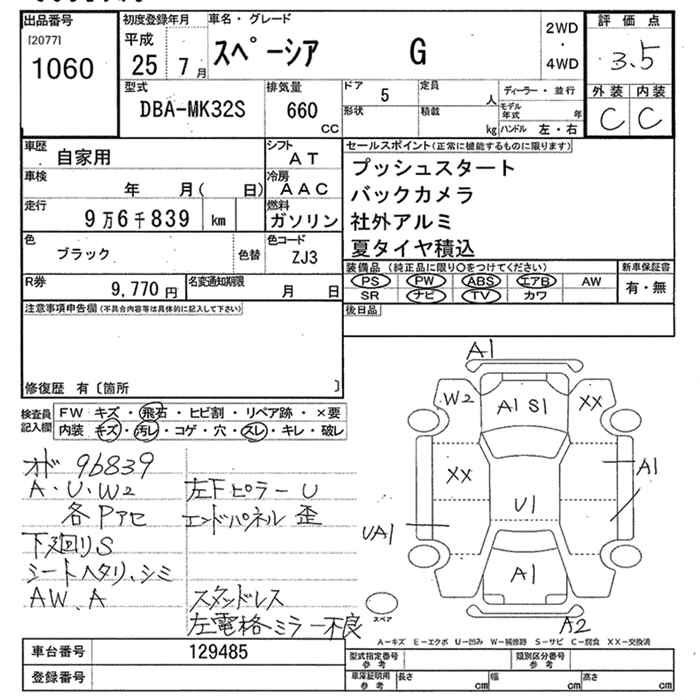 出品番号 初度登録年月 車名・グレード 評価点
[2077] 平成 2WD
1060 25 7月 スペーシア G ・ 3.5
4WD
型式 排気量 ドア 5 定員 人 ディーラー・並行 外装 内装
DBA-MK32S 660 cc 形状 積載 kg モデル年式 年 C C
ハンドル 左・右
車歴 自家用 シフト AT セールスポイント(正常に機能するものに限ります)
車検 年 月( 日) 冷房 AAC プッシュスタート
走行 9万6千839 km 燃料 ガソリン バックカメラ
色 ブラック 色替 色コード ZJ3 社外アルミ
夏タイヤ積込
R券 9,770円 名変通知期限 月 日 装備品(純正品に限り○をつけてください) 新車保証書
PS PW ABS エアB AW 有・無
SR ナビ TV カワ
注意事項申告欄(不具合内容等は具体的に記入して下さい) 後日品
修復歴 有〔箇所 〕
検査員記入欄 FW キズ・飛石・ヒビ割・リペア跡・×要
内装 キズ・汚レ・コゲ・穴・スレ・キレ・破レ
A1
W2 A1 S1 XX
XX A1
U1
UA1
A1
A2
スペア
オド 96839
A・U・W2 左Fピラー U
各Pアセ エンドパネル 歪
下廻りS
シートヘタリ、シミ
AW、A スタッドレス
左電格ミラー不良
A−キズ E−エクボ U−凹み W−補修跡 S−サビ C−腐食 XX−交換済
車台番号 129485 型式指定番号 参考 類別区分番号 参考
登録番号 車庫証明用 参考 長さ cm 幅 cm 高さ cm